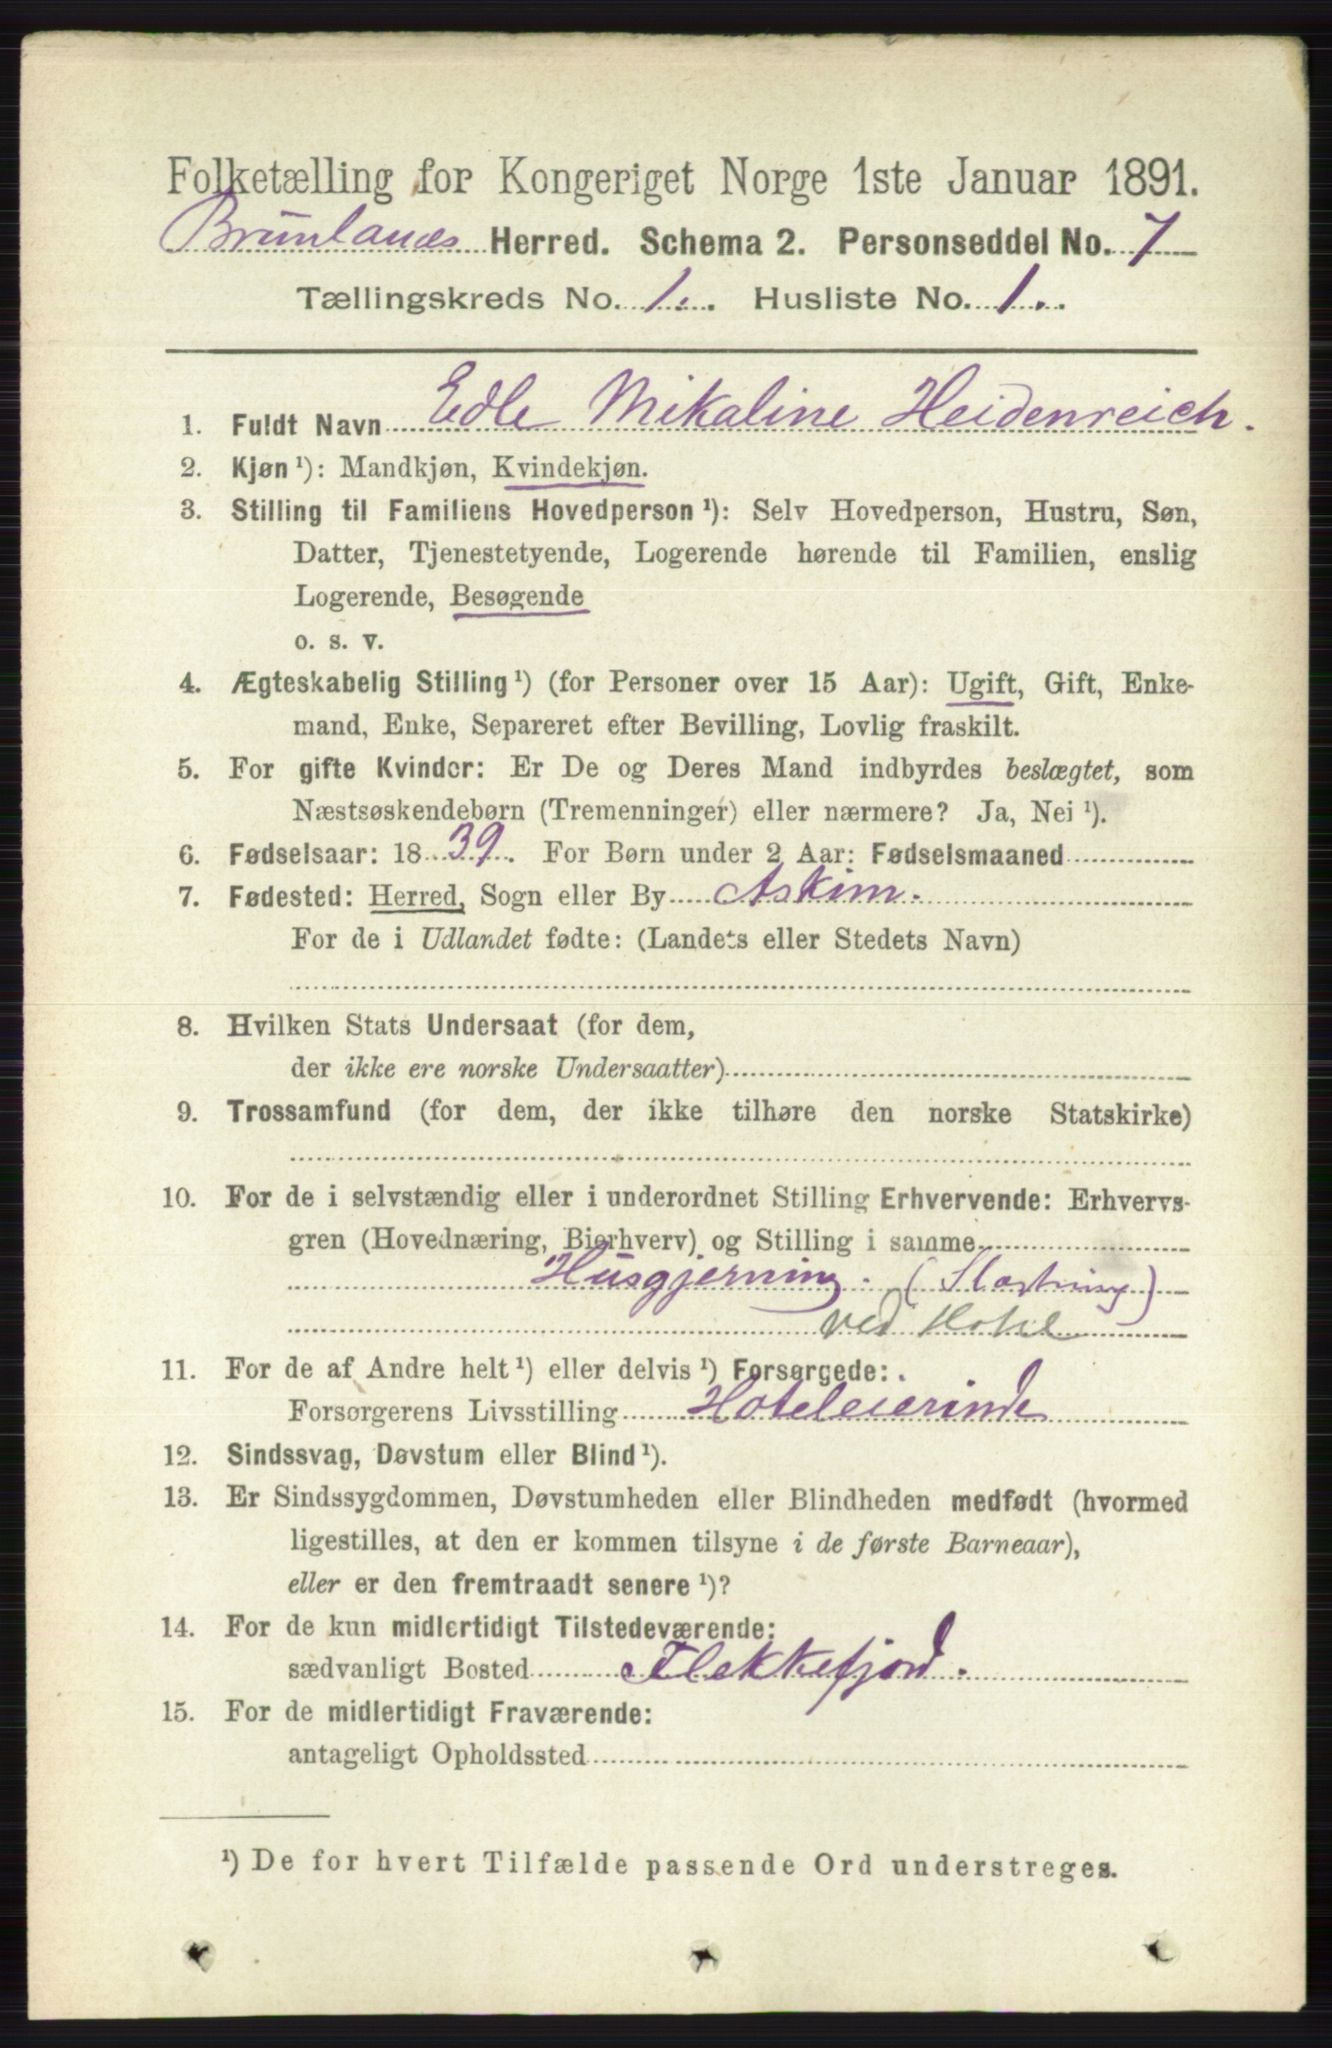 Folketælling for Kongeriget Norge 1ste Januar 1891.
Brunlanæs Herred. Schema 2. Personseddel No. 7
Tællingskreds No. 1. Husliste No. 1.
1. Fuldt Navn Edle Mikaline Heidenreich.
2. Kjøn ¹): Mandkjøn, Kvindekjøn.
3. Stilling til Familiens Hovedperson ¹): Selv Hovedperson, Hustru, Søn,
Datter, Tjenestetyende, Logerende hørende til Familien, enslig
Logerende, Besøgende
o. s. v.
4. Ægteskabelig Stilling ¹) (for Personer over 15 Aar): Ugift, Gift, Enke-
mand, Enke, Separeret efter Bevilling, Lovlig fraskilt.
5. For gifte Kvinder: Er De og Deres Mand indbyrdes beslægtet, som
Næstsøskendebørn (Tremenninger) eller nærmere? Ja, Nei ¹).
6. Fødselsaar: 1839. For Børn under 2 Aar: Fødselsmaaned
7. Fødested: Herred, Sogn eller By Askim.
For de i Udlandet fødte: (Landets eller Stedets Navn)
8. Hvilken Stats Undersaat (for dem,
der ikke ere norske Undersaatter)
9. Trossamfund (for dem, der ikke tilhøre den norske Statskirke)
10. For de i selvstændig eller i underordnet Stilling Erhvervende: Erhvervs-
gren (Hovednæring, Bierhverv) og Stilling i samme
Husgjerning.
ved Hotel
11. For de af Andre helt ¹) eller delvis ¹) Forsørgede:
Forsørgerens Livsstilling Hoteleierinde
12. Sindssvag, Døvstum eller Blind ¹).
13. Er Sindssygdommen, Døvstumheden eller Blindheden medfødt (hvormed
ligestilles, at den er kommen tilsyne i de første Barneaar),
eller er den fremtraadt senere ¹)?
14. For de kun midlertidigt Tilstedeværende:
sædvanligt Bosted Flekkefjord.
15. For de midlertidigt Fraværende:
antageligt Opholdssted
¹) De for hvert Tilfælde passende Ord understreges.